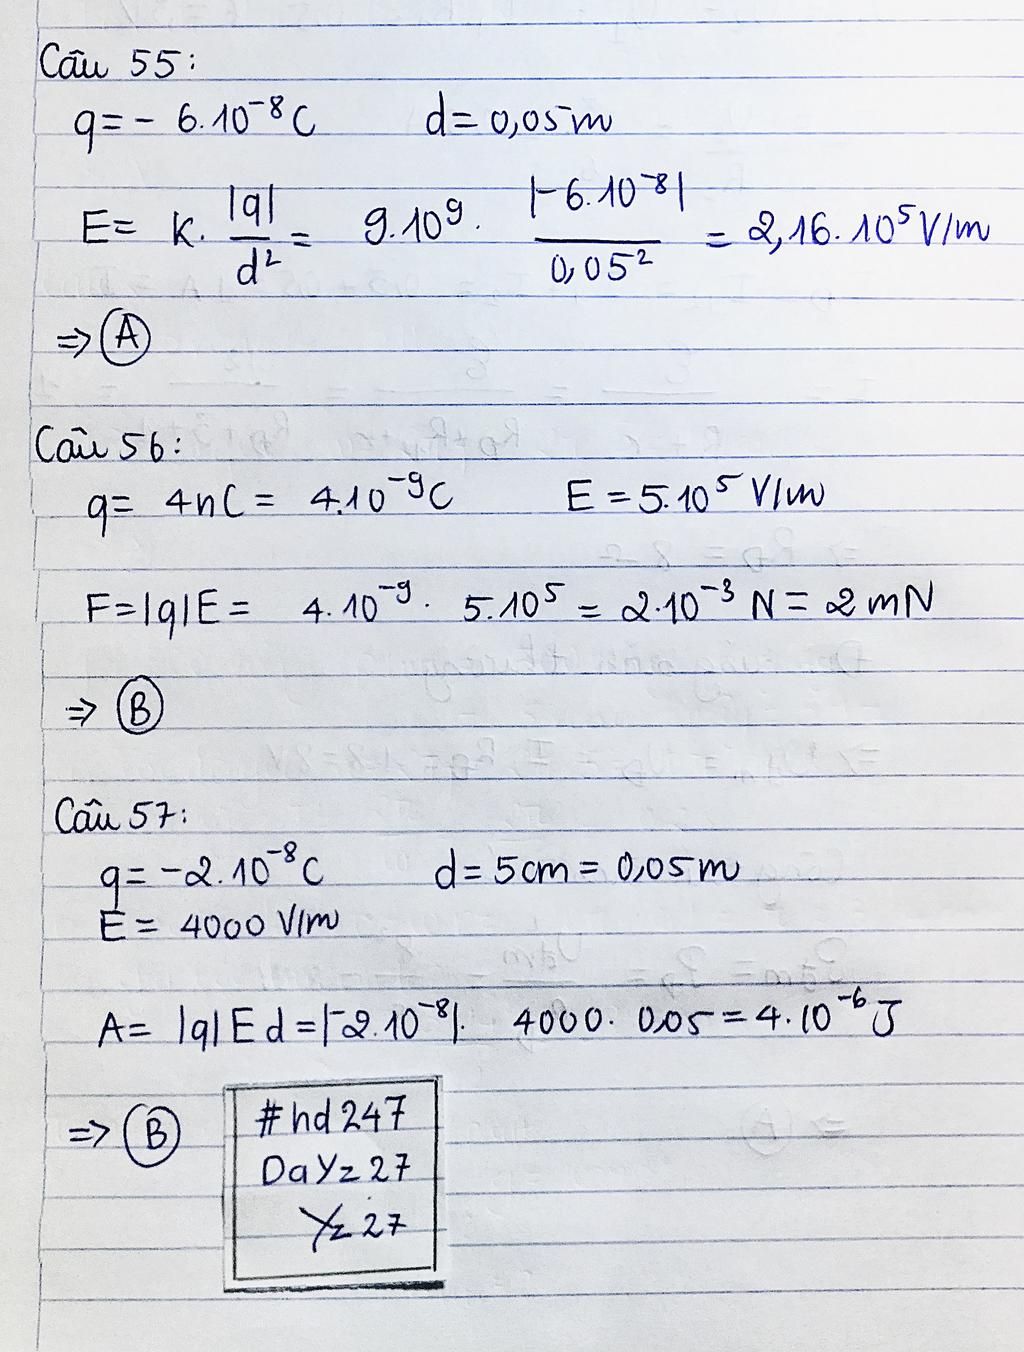 Câu 55:
q = - 6.10⁻⁸C d = 0,05m
E = k. |q|/d² = 9.10⁹. |-6.10⁻⁸|/0,05² = 2,16.10⁵ V/m
=> A
Câu 56:
q = 4nC = 4.10⁻⁹C E = 5.10⁵ V/m
F = |q|E = 4.10⁻⁹. 5.10⁵ = 2.10⁻³ N = 2mN
=> B
Câu 57:
q = -2.10⁻⁸C d = 5cm = 0,05m
E = 4000 V/m
A = |q|Ed = |-2.10⁻⁸|. 4000. 0,05 = 4.10⁻⁶ J
=> B
#hd247
DaYz27
Yz27